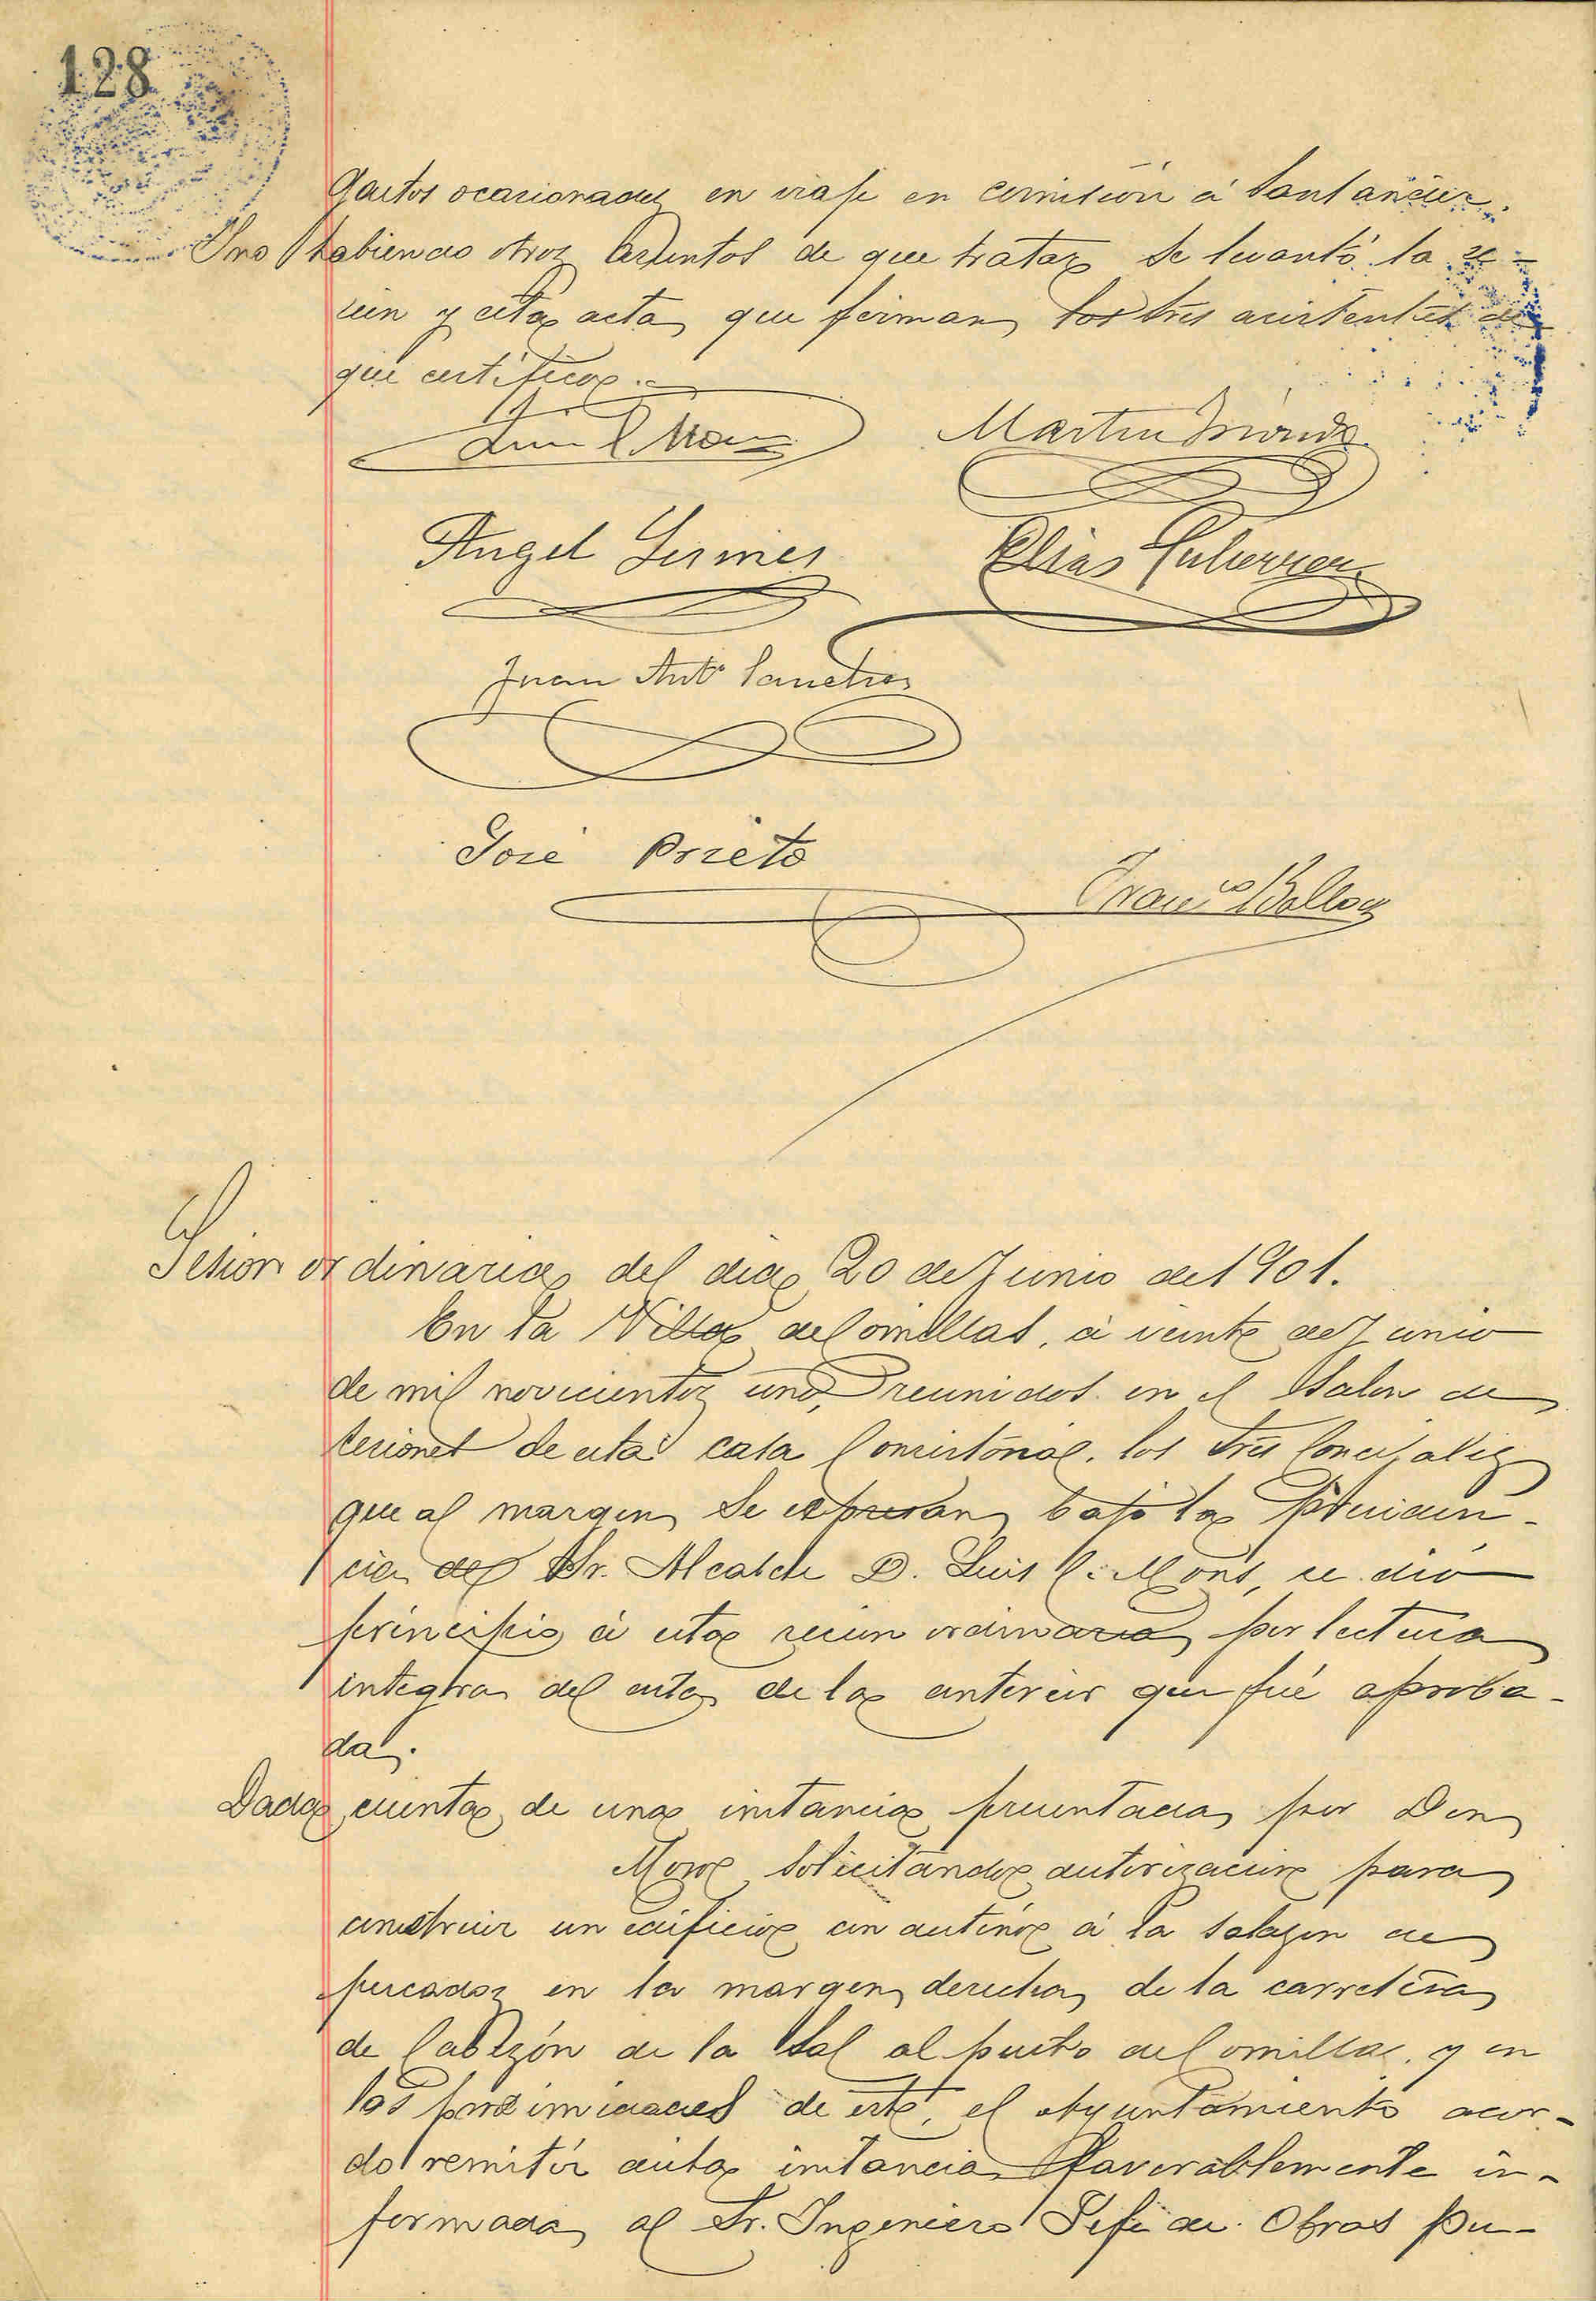 128
gastos ocasionados en viaje en comisión á Santander.
Y no habiendo otros asuntos de que tratar se levantó la se-
sión y esta acta que firman los Sres asistentes de
que certifico.
Luis C. Mons
Martin
Angel
Elias Gutierrez
Juan Antº Sanchez
José Prieto
Francº
Sesion ordinaria del dia 20 de Junio de 1901.
En la Villa de Comillas, á veinte de Junio
de mil novecientos uno, reunidos en el Salon de
sesiones de esta casa Consistorial, los Sres Concejales
que al margen se expresan bajo la Presiden-
cia del Sr. Alcalde D. Luis C. Mons, se dió
principio á esta sesion ordinaria por lectura
integra del acta de la anterior que fué aproba-
da.
Dada cuenta de una instancia presentada por Don
Mora solicitando autorización para
construir un edificio con destino á la salazon de
pescados en la margen derecha de la carretera
de Cabezón de la Sal al puerto de Comillas, y en
las proximidades de este, el Ayuntamiento acor-
do remitir dicha instancia favorablemente in-
formada al Sr. Ingeniero Jefe de Obras pu-